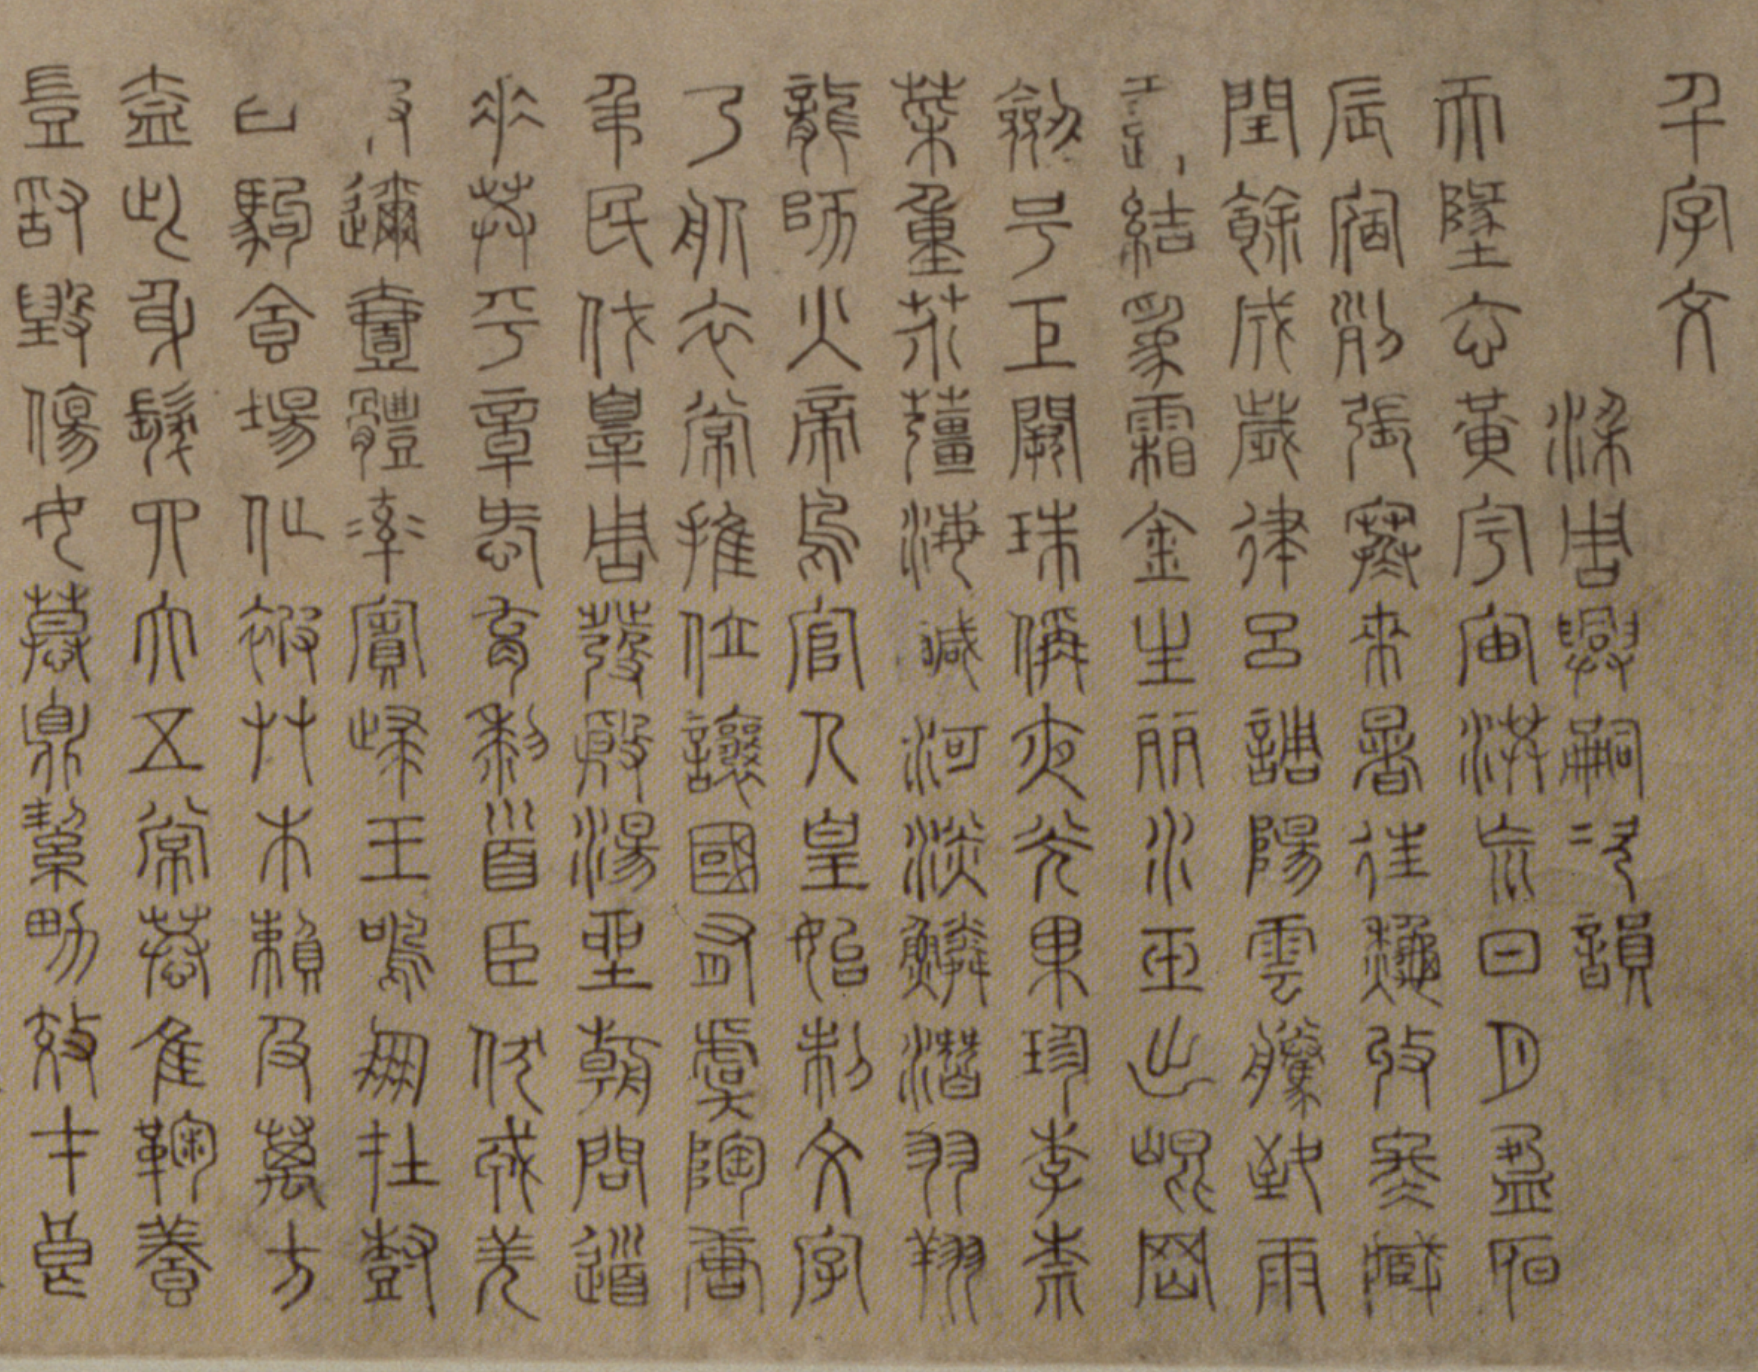 千字文
梁周興嗣次韻
天地玄黃宇宙洪荒日月盈昃
辰宿列張寒來暑往秋收冬藏
閏餘成歲律呂調陽雲騰致雨
露結為霜金生麗水玉出崑岡
劍號巨闕珠稱夜光果珍李柰
菜重芥薑海鹹河淡鱗潛羽翔
龍師火帝鳥官人皇始制文字
乃服衣裳推位讓國有虞陶唐
弔民伐辠周發殷湯坐朝問道
垂拱平章愛育黎首臣伏戎羌
遐邇壹體率賓歸王鳴鳳在樹
白駒食場化被草木賴及萬方
蓋此身髮四大五常恭惟鞠養
豈敢毀傷女慕貞絜男效才良